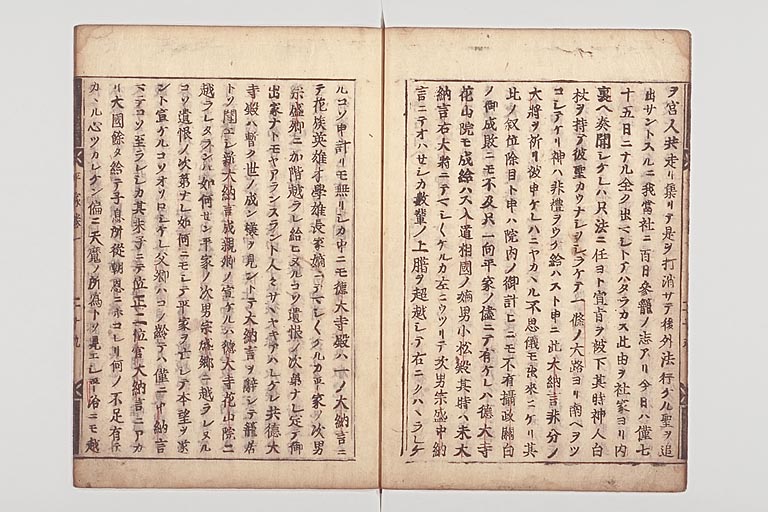 ヲ官人共走リ集リテ是ヲ打消サテ後外法行ケル聖ヲ追
出サントスルニ我當社ニ百日参籠ノ志アリ今日ハ僅七
十五日ニナル全ク出マシトテハタラカス此由ヲ社家ヨリ内
裏ヘ奏聞シケレハ只法ニ任ヨト宣旨ヲ被下其時神人白
杖ヲ持テ彼聖カウナシヲシラケテ一條ノ大路ヨリ南ヘヲツ
コシテケリ神ハ非禮ヲウケ給ハスト申ニ此大納言非分ノ
大將ヲ祈リ被申ケレハニヤカヽル不思儀モ出來ニケリ其
比ノ叙位除目ト申ハ院内ノ御計ヒニモ不有攝政關白
ノ御成敗ニモ不及只一向平家ノ儘ニテ有ケレハ德大寺
花山院モ成給ハス入道相國ノ嫡男小松殿其時ハ未大
納言右大將ニテマシ〱ケルカ左ニウツリテ次男宗盛中納
言ニテオハセシカ數輩ノ上臈ヲ超越シテ右ニクハヽラレケ
ルコソ申計リモ無リシカ中ニモ德大寺殿ハ一ノ大納言ニ
テ花族英雄才學雄長家嫡ニテマシ〱ケルカ平家ノ次男
宗盛卿ニ加階越ラレ給ヒヌルコソ遺恨ノ次第ナレ定テ御
出家ナトモヤアランスラント人々サヽヤキアハレケレ共德大
寺殿ハ暫ク世ノ成ン樣ヲ見ントテ大納言ヲ辭シテ籠居
トソ聞エシ新大納言成親卿ノ宣ケルハ德大寺花山院ニ
越ラレタランハ如何セン平家ノ次男宗盛卿ニ越ラレヌル
コソ遺恨ノ次第ナレ如何ニモシテ平家ヲ亡シテ本望ヲ遂
ント宣ケルコソオソロシケレ父卿ハコノ齡テハ僅ニ中納言
マテコソ至ラレシカ其末子ニテ位正二位官大納言ニアカ
リ大國餘タ給テ子息所從朝恩ニホコレリ何ノ不足有テ
カヽル心ツカレケン偏ニ天魔ノ所為トソ見エシ平治ニモ越
平家巻一